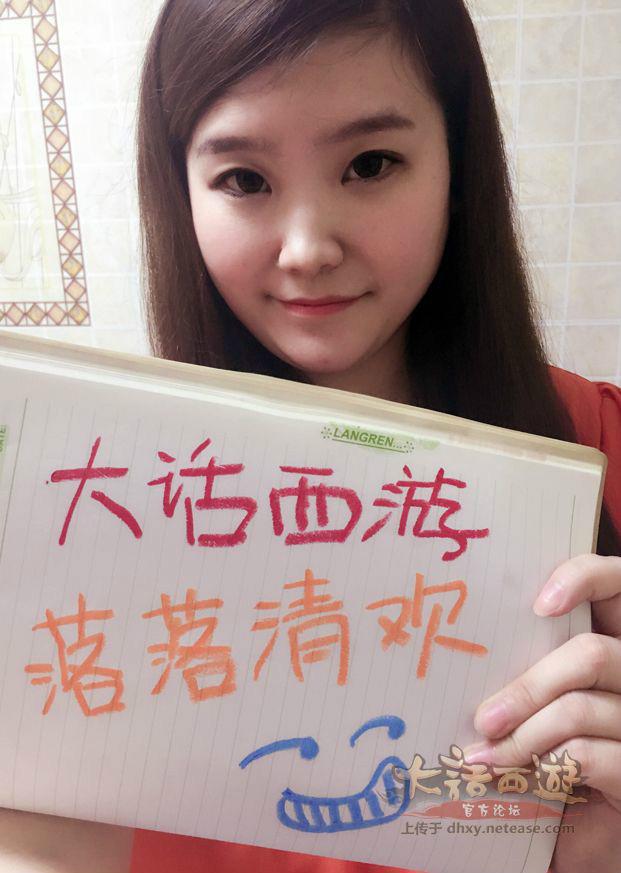 LANGREN...
大话西游
落落清欢
大话西游
官方论坛
上传于 dhxy.netease.com